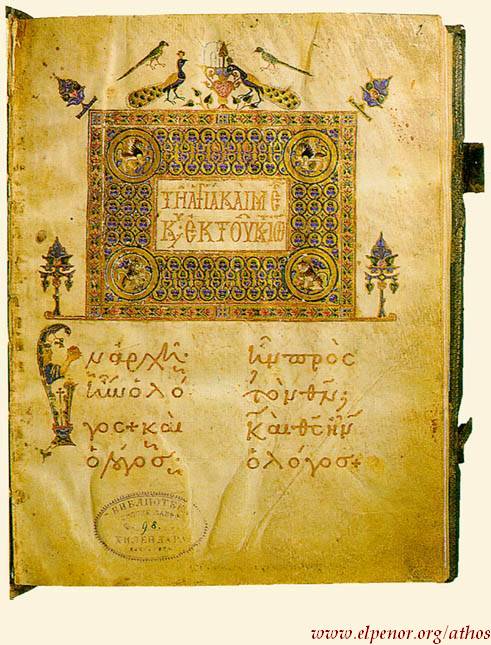 ΤΗ ΑΓΙΑ ΚΑΙ Μ Ε
ΚΥ ΕΚ ΤΟΥ Κ ΙΩ
Ἐν ἀρχῆ·
ἦν ὁ λό
γος + καὶ
ὁ λόγος·
ἦν πρὸς
τὸν θν̄;
καὶ θς̄ ἦν
ὁ λόγος +
БИБЛІОТЕКА
98.
ХИЛЕНДАРА
www.elpenor.org/athos